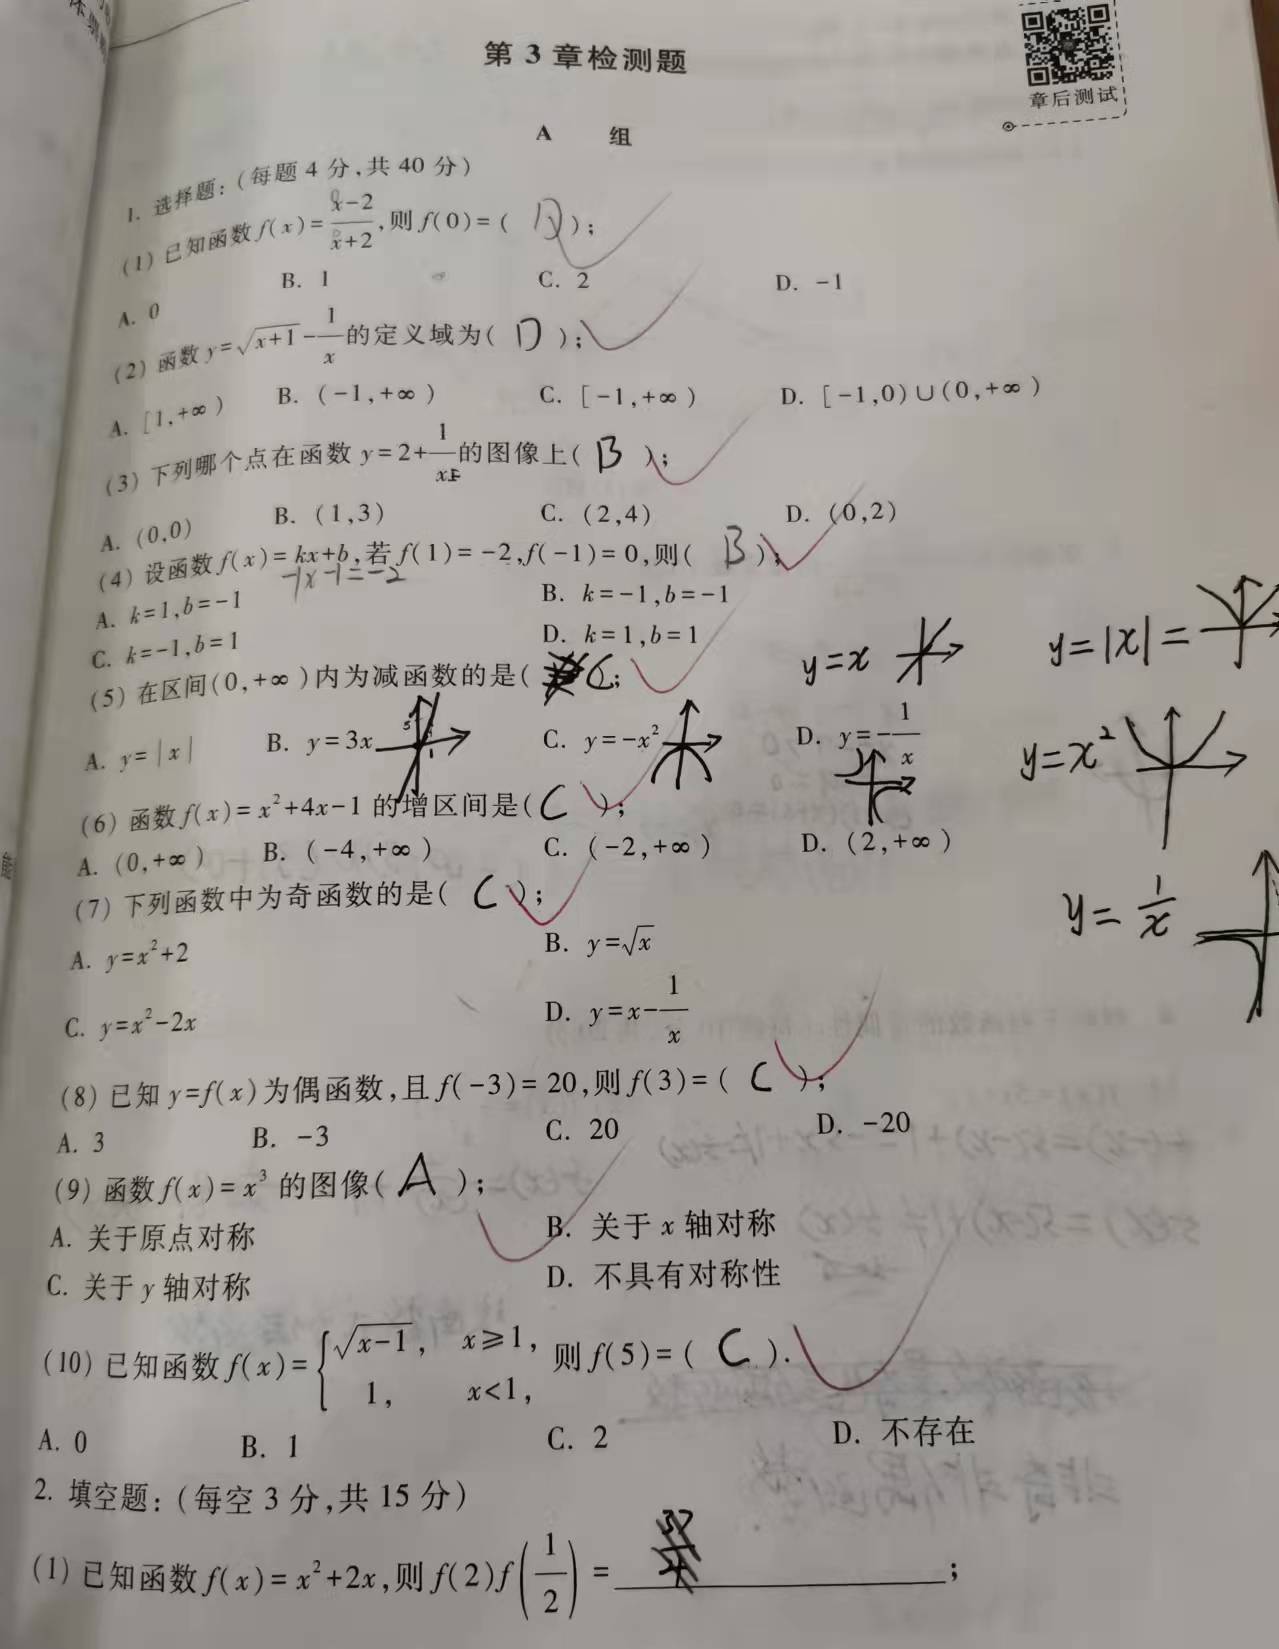 第3章检测题
章后测试
A 组
1. 选择题:(每题4分,共40分)
(1) 已知函数 f(x)=\frac{x-2}{x+2},则 f(0)=( D );
A. 0 B. 1 C. 2 D. -1
(2) 函数 y=\sqrt{x+1}-\frac{1}{x}的定义域为( D );
A. [1,+∞) B. (-1,+∞) C. [-1,+∞) D. [-1,0)∪(0,+∞)
(3) 下列哪个点在函数 y=2+\frac{1}{x}的图像上( B );
A. (0,0) B. (1,3) C. (2,4) D. (0,2)
(4) 设函数 f(x)=kx+b,若 f(1)=-2,f(-1)=0,则( B );
-1x-1=-2
A. k=1,b=-1 B. k=-1,b=-1
C. k=-1,b=1 D. k=1,b=1
y=x y=|x|=
(5) 在区间(0,+∞)内为减函数的是( C );
A. y=|x| B. y=3x C. y=-x² D. y=-\frac{1}{x}
y=x²
(6) 函数 f(x)=x²+4x-1 的增区间是( C );
A. (0,+∞) B. (-4,+∞) C. (-2,+∞) D. (2,+∞)
(7) 下列函数中为奇函数的是( C );
y=\frac{1}{x}
A. y=x²+2 B. y=\sqrt{x}
C. y=x²-2x D. y=x-\frac{1}{x}
(8) 已知 y=f(x)为偶函数,且 f(-3)=20,则 f(3)=( C );
A. 3 B. -3 C. 20 D. -20
(9) 函数 f(x)=x³ 的图像( A );
A. 关于原点对称 B. 关于 x 轴对称
C. 关于 y 轴对称 D. 不具有对称性
(10) 已知函数 f(x)={\sqrt{x-1}, x≥1, 1, x<1, 则 f(5)=( C ).
A. 0 B. 1 C. 2 D. 不存在
2. 填空题:(每空3分,共15分)
(1) 已知函数 f(x)=x²+2x,则 f(2)f(\frac{1}{2})=____;